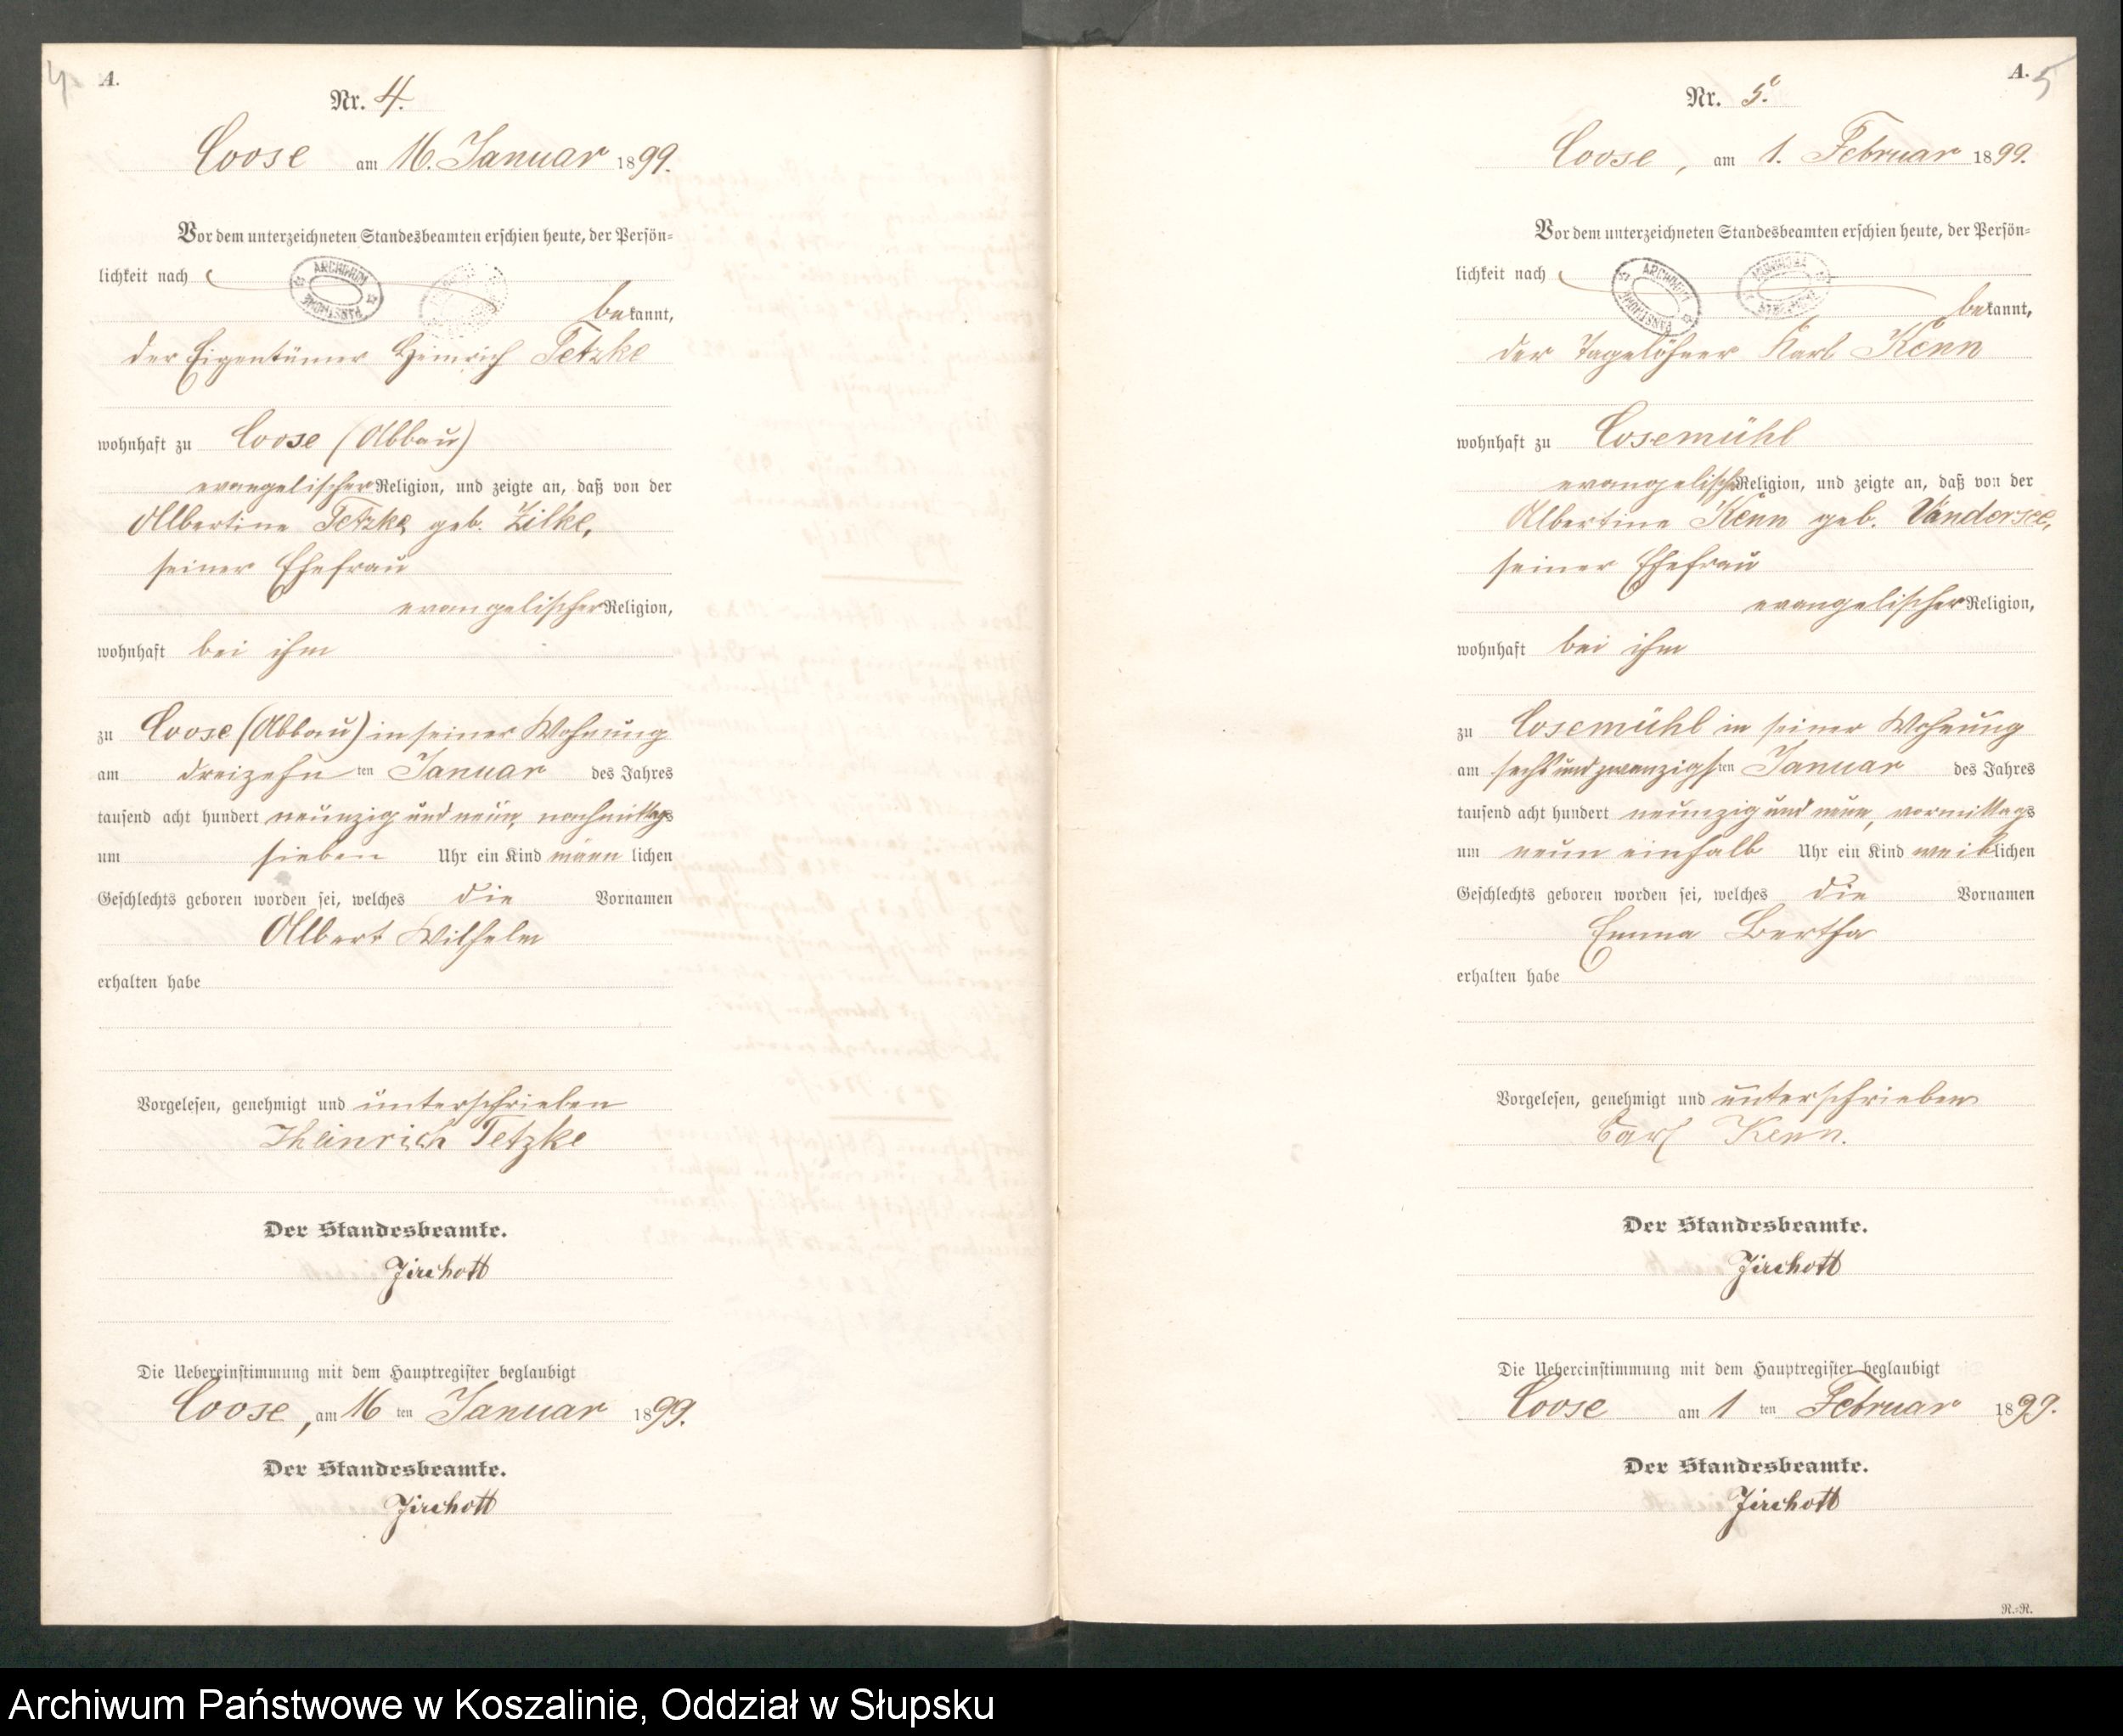 4
A.
Nr. 4.
Loose am 16. Januar 1899.
Vor dem unterzeichneten Standesbeamten erschien heute, der Persön=
lichkeit nach
ARCHIWUM PAŃSTWOWE
bekannt,
der Eigentümer Heinrich Tetzke
wohnhaft zu Loose (Abbau)
evangelischer Religion, und zeigte an, daß von der
Albertine Tetzke geb. Zilke,
seiner Ehefrau
evangelischer Religion,
wohnhaft bei ihm
zu Loose (Abbau) in seiner Wohnung
am dreizehn ten Januar des Jahres
tausend acht hundert neunzig und neun, nachmittags
um sieben Uhr ein Kind männ lichen
Geschlechts geboren worden sei, welches die Vornamen
Albert Wilhelm
erhalten habe
Vorgelesen, genehmigt und unterschrieben
Heinrich Tetzke
Der Standesbeamte.
Zirchott
Die Uebereinstimmung mit dem Hauptregister beglaubigt
Loose, am 16 ten Januar 1899.
Der Standesbeamte.
Zirchott
A.
5
Nr. 5.
Loose, am 1. Februar 1899.
Vor dem unterzeichneten Standesbeamten erschien heute, der Persön=
lichkeit nach
bekannt,
der Tagelöhner Karl Kenn
wohnhaft zu Losemühl
evangelisch Religion, und zeigte an, daß von der
Albertine Kenn geb. Vandersee,
seiner Ehefrau
evangelischer Religion,
wohnhaft bei ihm
zu Losemühl in seiner Wohnung
am sechs und zwanzigsten Januar des Jahres
tausend acht hundert neunzig und neun, vormittags
um neun einhalb Uhr ein Kind weiblichen
Geschlechts geboren worden sei, welches die Vornamen
Emma Bertha
erhalten habe
Vorgelesen, genehmigt und unterschrieben
Carl Kenn.
Der Standesbeamte.
Zirchott
Die Uebereinstimmung mit dem Hauptregister beglaubigt
Loose am 1 ten Februar 1899.
Der Standesbeamte.
Zirchott
R.=R.
Archiwum Państwowe w Koszalinie, Oddział w Słupsku